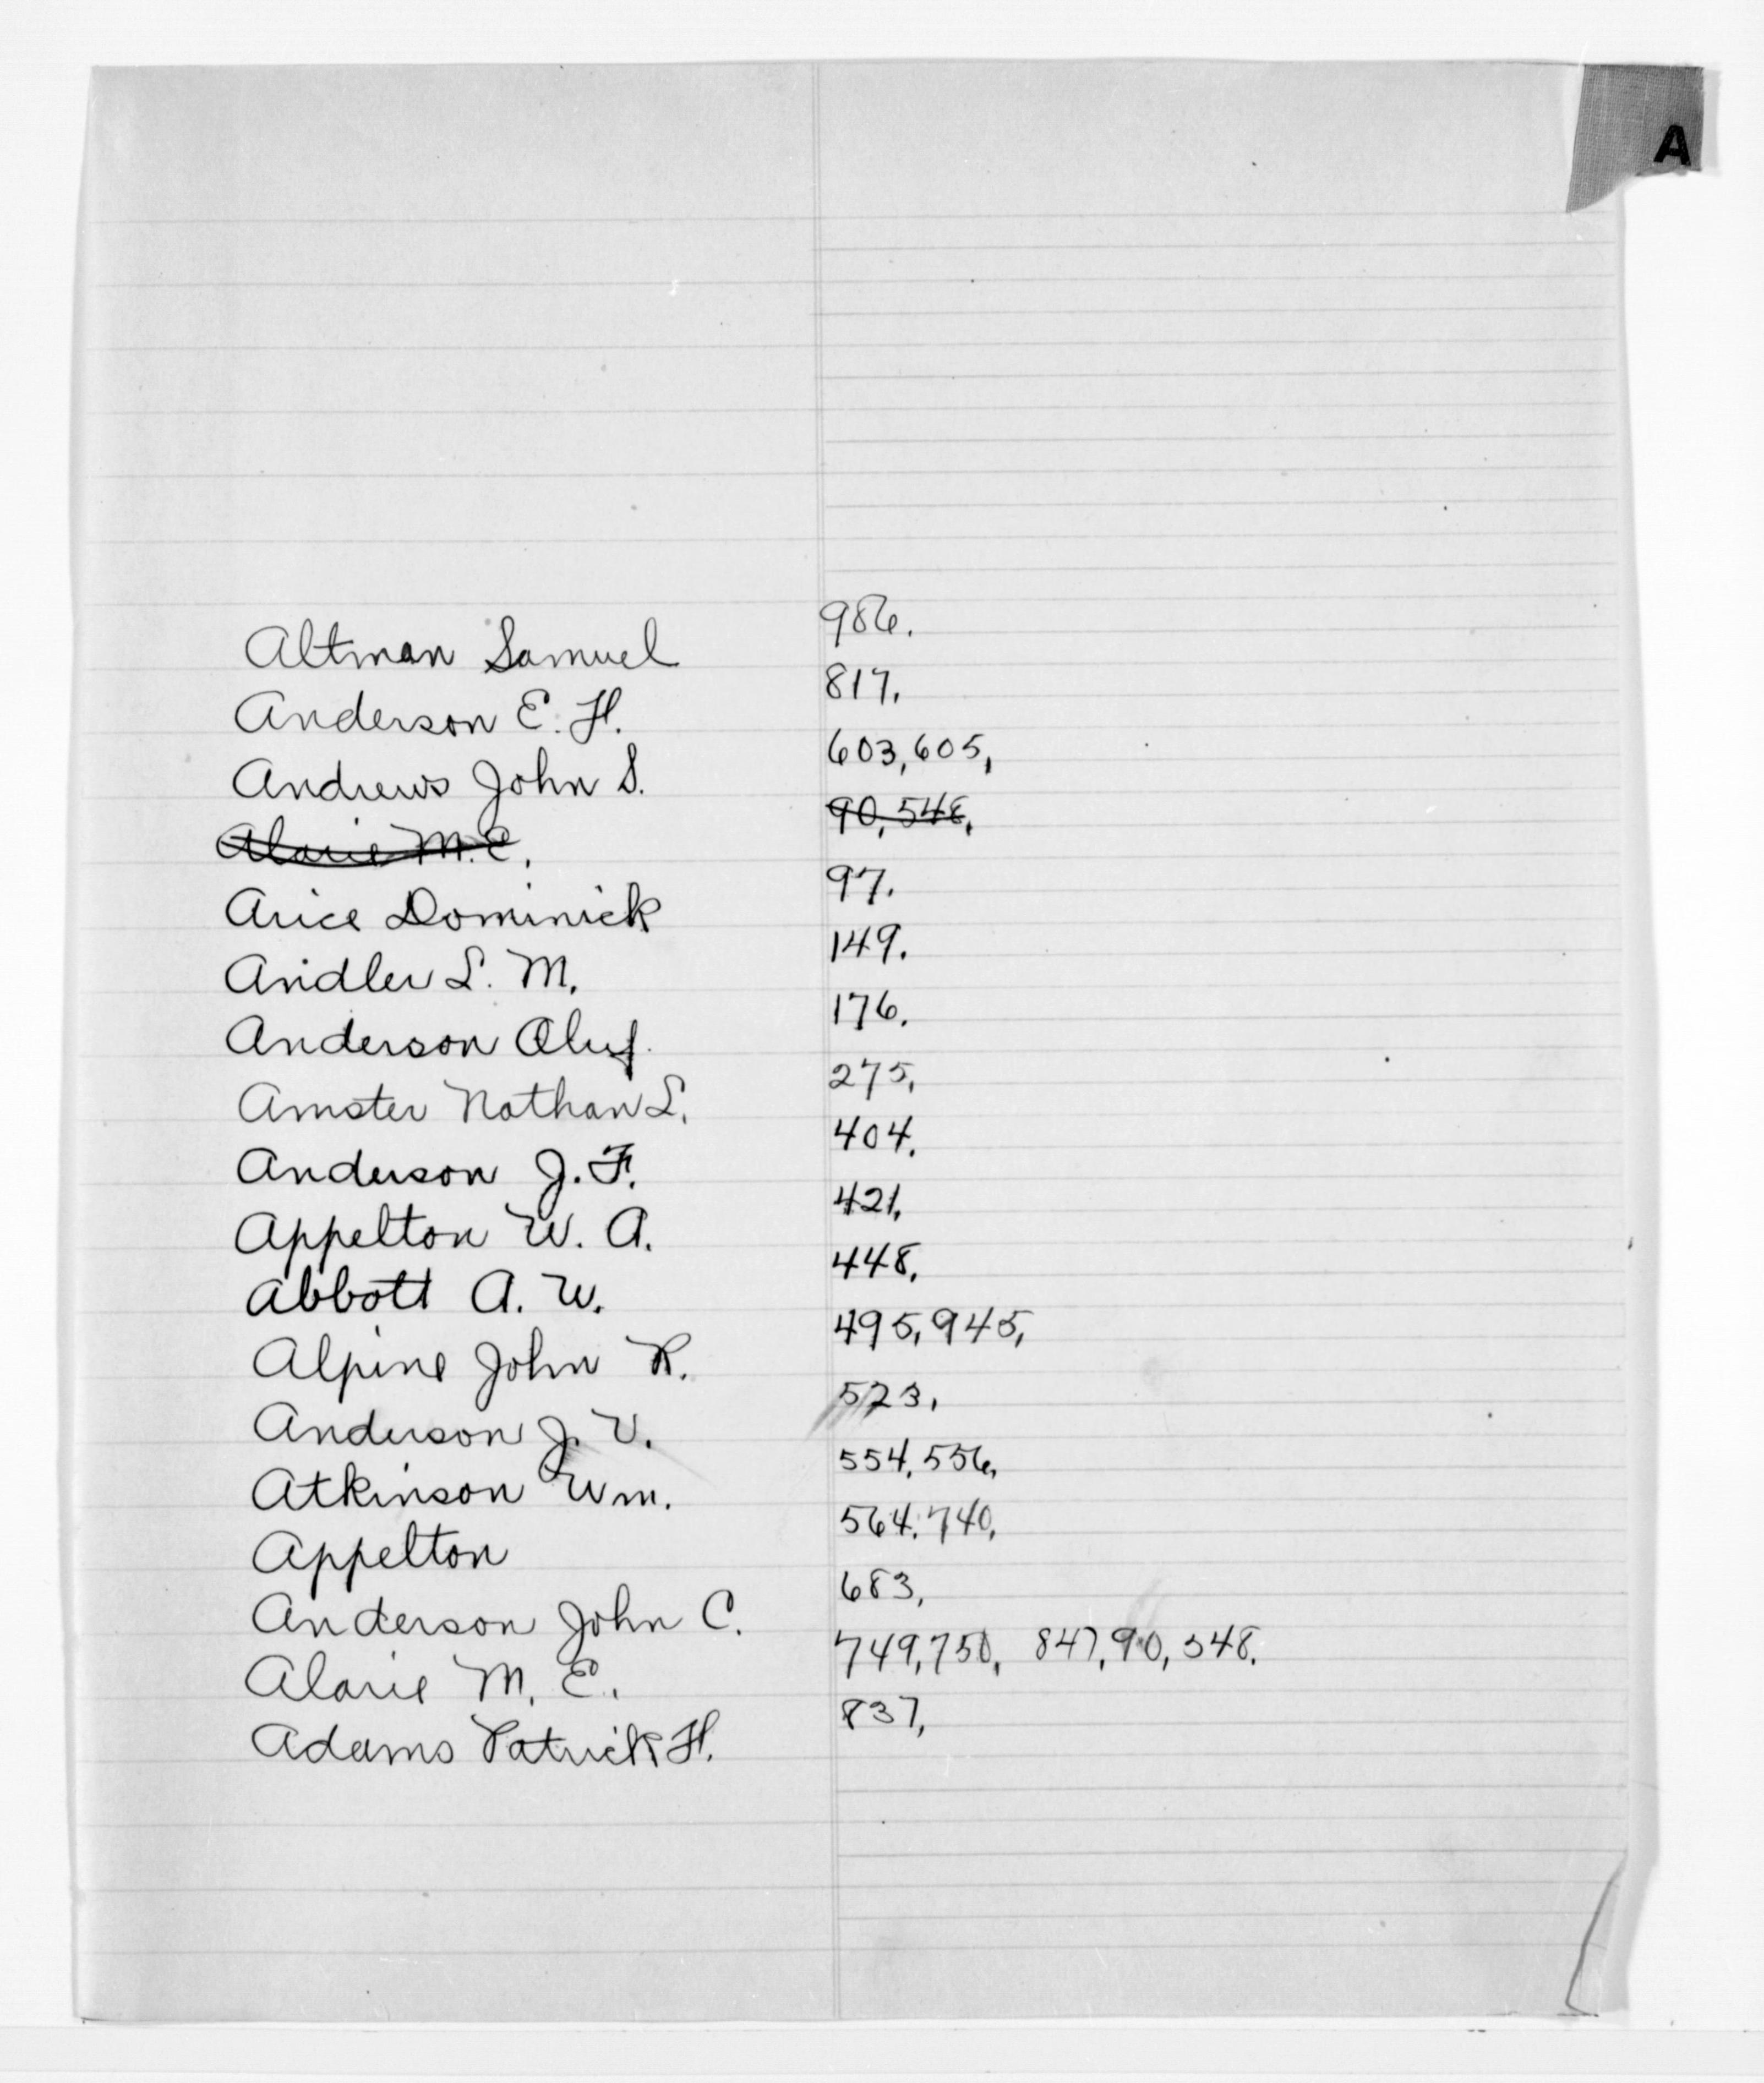 A
Altman Samuel 986.
Anderson E. H. 817,
Andrews John S. 603, 605,
Alarie M. E. 90, 548,
Arice Dominick 97.
Andler L. M. 149.
Anderson Oluf. 176.
Amster Nathan L. 275,
Anderson J. F. 404.
Appelton W. A. 421,
Abbott A. W. 448,
Alpine John R. 495, 945,
Anderson J. V. 523,
Atkinson Wm. 554, 556,
Appelton 564, 740,
Anderson John C. 683,
Alarie M. E. 749, 750, 847, 90, 548.
Adams Patrick H. 837,